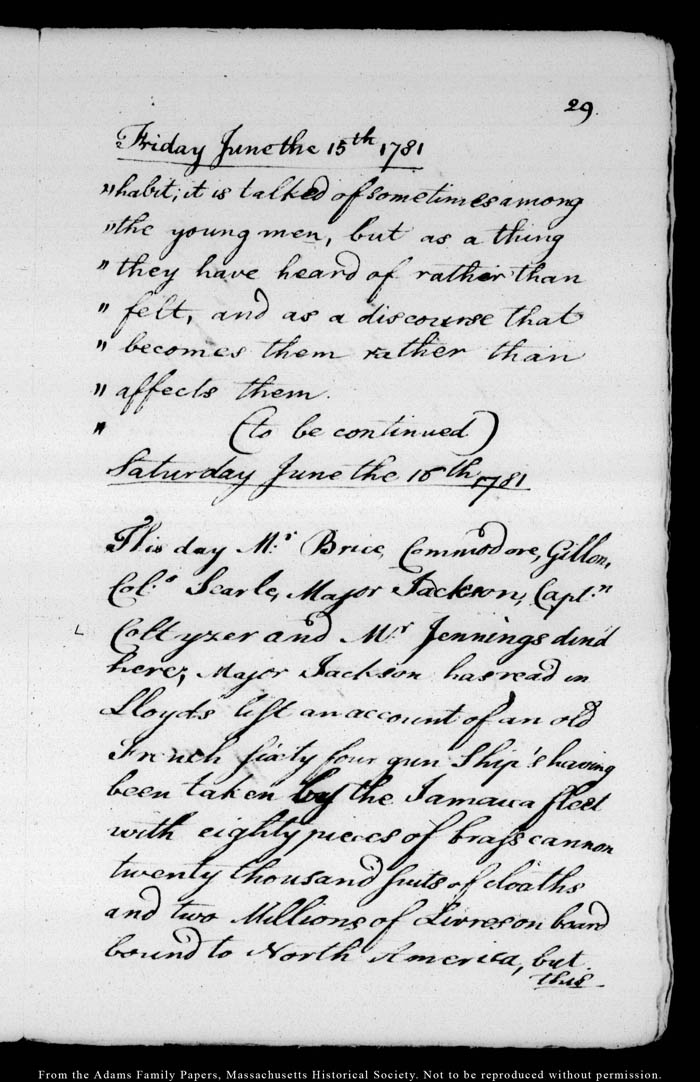 29.
Friday June the 15th 1781
"habit; it is talked of sometimes among
"the young men, but as a thing
" they have heard of rather than
" felt, and as a discourse that
" becomes them rather than
" affects them.
" (to be continued)
Saturday June the 16th 1781
This day M:r Brice, Commodore, Gillon,
Col:o Searle, Major Jackson, Capt:n
Coltyzer and M:r Jennings din'd
here, Major Jackson has read in
Lloyds list an account of an old
French sixty four gun Ship's having
been taken by the Jamaica fleet
with eighty pieces of brass cannon
twenty thousand suits of cloaths
and two Millions of Livres on board
bound to North America, but
this
From the Adams Family Papers, Massachusetts Historical Society. Not to be reproduced without permission.